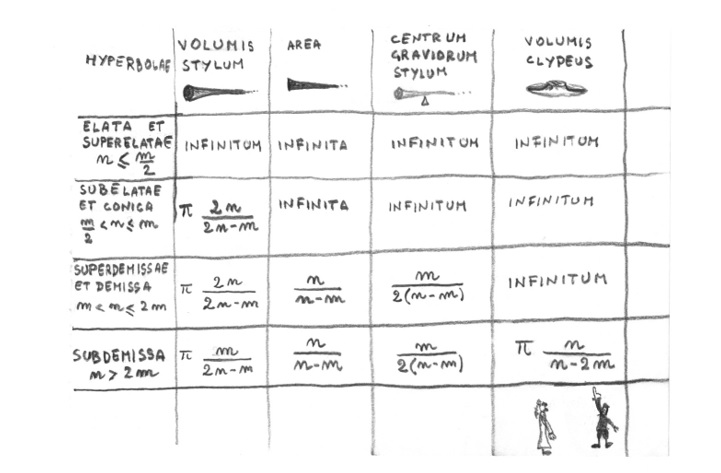 HYPERBOLAE
VOLUMIS
STYLUM
AREA
CENTRUM
GRAVIORUM
STYLUM
VOLUMIS
CLYPEUS
ELATA ET
SUPERELATAE
n ≤ m/2
INFINITUM
INFINITA
INFINITUM
INFINITUM
SUBELATAE
ET CONICA
m/2 < n ≤ m
π 2n/(2n-m)
INFINITA
INFINITUM
INFINITUM
SUPERDEMISSAE
ET DEMISSA
m < n ≤ 2m
π 2n/(2n-m)
n/(n-m)
m/2(n-m)
INFINITUM
SUBDEMISSA
n > 2m
π m/(2n-m)
n/(n-m)
m/2(n-m)
π n/(n-2m)